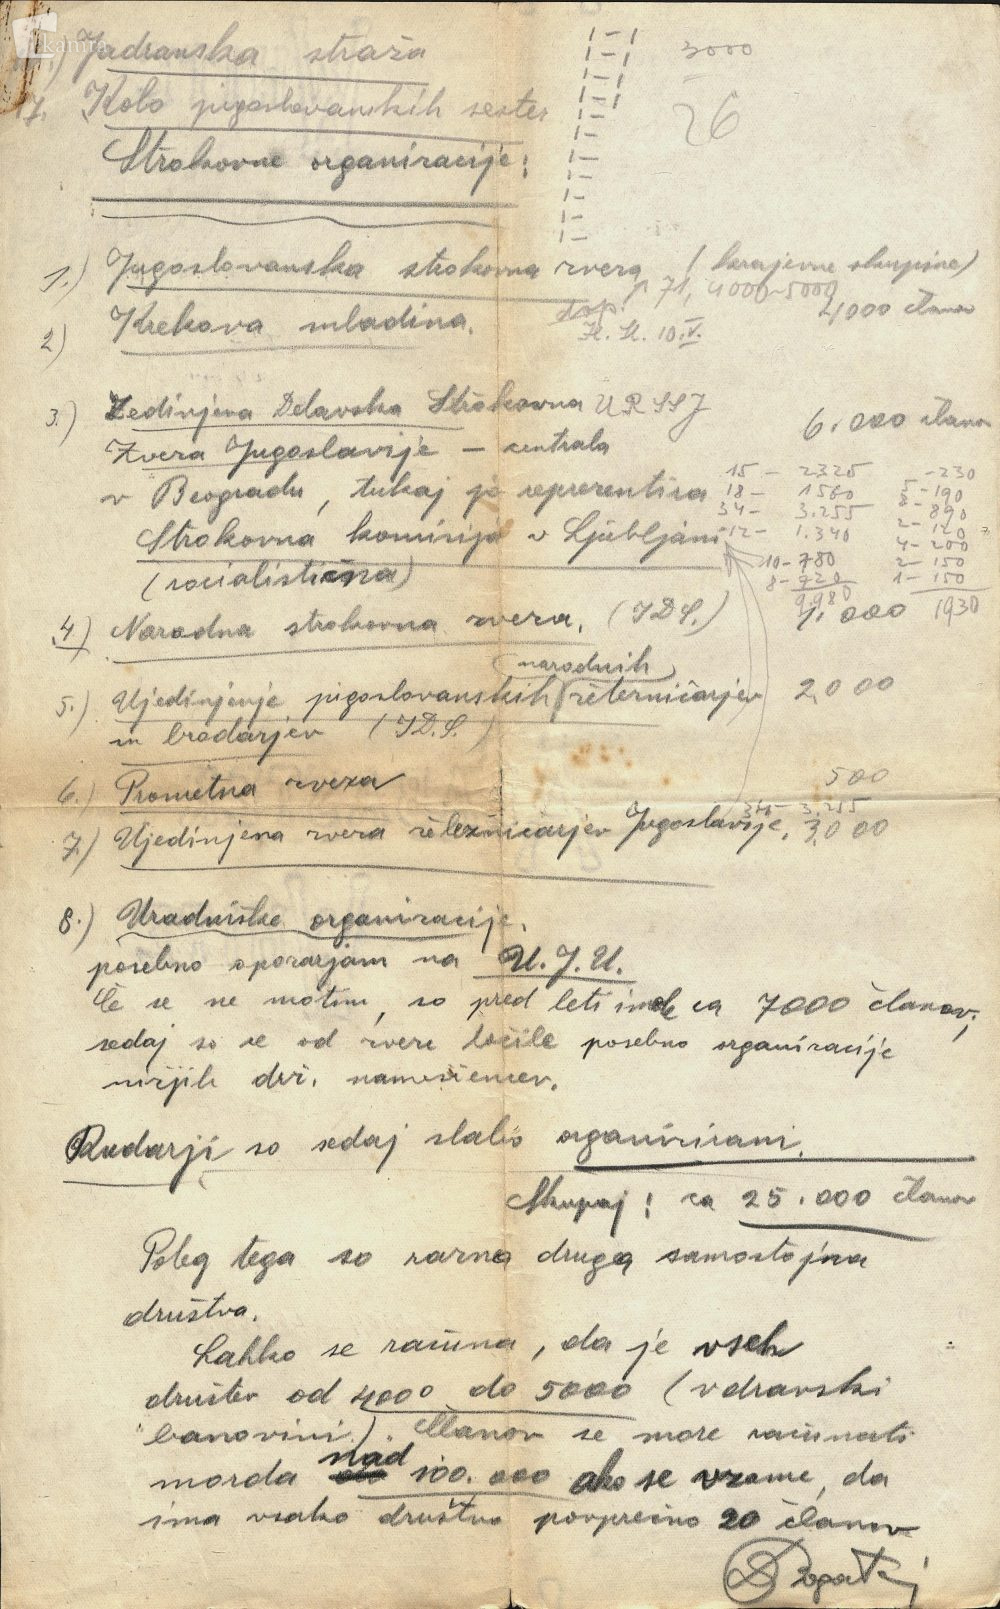 Kamra
) Jadranska straža
3000
17. Kolo jugoslovanskih sester
26
Strokovne organizacije:
1.) Jugoslovanska strokovna zveza (krajevne skupine)
71, 4000-5000
4000 članov
2) Krekova mladina.
10.V.
3.) Zedinjena Delavska Strokovna URSSJ
6.000 članov
Zveza Jugoslavije – centrala
v Beogradu, tukaj jo reprezentira
Strokovna komisija v Ljubljani
(socialistična)
15 – 2325 – 230
18 – 1560 5 – 190
34 – 3.255 8 – 890
12 – 1.340 2 – 120
10 – 780 4 – 200
8 – 720 2 – 150
9.980 1 – 150
1930
4) Narodna strokovna zveza. (JDS.) 1.000
narodnih
5.) Ujedinjenje jugoslovanskih železničarjev 2000
in brodarjev (JD.S.)
6.) Prometna zveza 500
34 – 3.255
7.) Ujedinjena zveza železničarjev Jugoslavije. 3000
8.) Uradniške organizacije.
posebno opozarjam na U.J.U.
Če se ne motim, so pred leti imele ca 7000 članov,
sedaj so se od zveze ločile posebno organizacije
nižjih drž. nameščencev.
Rudarji so sedaj slabo organizirani.
Skupaj: ca 25.000 članov
Poleg tega so razna druga samostojna
društva.
Lahko se računa, da je vseh
društev od 4000 do 5000 (v dravski
banovini). Članov se more računati
morda nad 100.000 ako se vzame, da
ima vsako društvo povprečno 20 članov